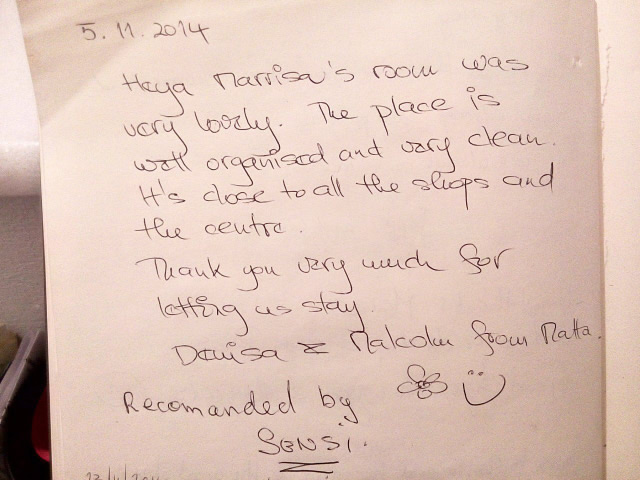 5.11.2014
Heya Marrisa's room was
very lovely. The place is
well organised and very clean.
It's close to all the shops and
the centre.
Thank you very much for
letting us stay.
Denisa & Malcolm from Malta.
Recomanded by
SENSI.